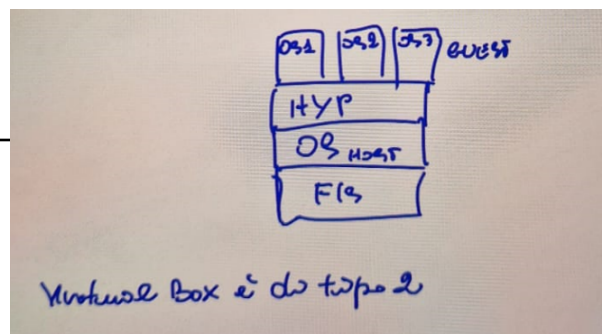 OS1 OS2 OS3 GUEST
HYP
OS HOST
FIS
Virtual Box è do tipo 2